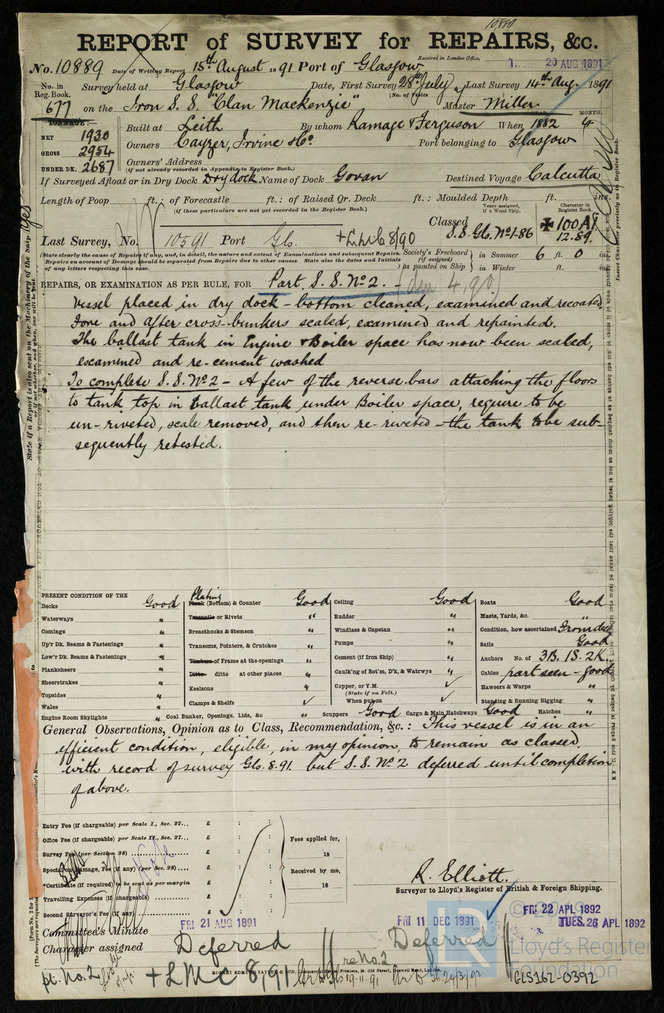 10889
REPORT of SURVEY for REPAIRS, &c.
Received in London Office,
No. 10889 Date of Writing Report 15th August 1891 Port of Glasgow
20 AUG 1891
No. in Reg. Book. Survey held at Glasgow Date, First Survey 28th July Last Survey 14th Aug. 1891
(No. of Visits
677 on the Iron S.S. "Clan Mackenzie" Master Miller
TONNAGE:— Built at Leith By whom Ramage & Ferguson When 1882 MONTH. 4
NET 1930
GROSS 2954
UNDER DK. 2687
Owners Cayzer, Irvine & Co. Port belonging to Glasgow
Owners' Address
(if not already recorded in Appendix to Register Book.)
If Surveyed Afloat or in Dry Dock Dry dock Name of Dock Govan Destined Voyage Calcutta
Length of Poop ft. : of Forecastle ft. : of Raised Qr. Deck ft. : Moulded Depth ft. in.
(if these particulars are not yet recorded in the Register Book.)
Years assigned, if a Wood Ship.
Character in Register Book.
Classed S.S. Gls. No. 1-86 ✠ 100 A1 12.89
Last Survey, No. 10591 Port Gls. + L.M.C. 8/90
(State clearly the cause of Repairs if any, and, in detail, the nature and extent of Examinations and subsequent Repairs. Repairs on account of Damage should be separated from Repairs due to other causes. State also the dates and Initials of any letters respecting this case.
Society's Freeboard (if assigned) as painted on Ship in Summer 6 ft. 0 ins.
in Winter ft. ins.
REPAIRS, OR EXAMINATION AS PER RULE, FOR Part, S.S. No. 2.
Vessel placed in dry dock – bottom cleaned, examined and recoated.
Fore and after cross-bunkers scaled, examined and repainted.
The ballast tank in Engine & Boiler space has now been scaled,
examined and re-cement washed
To complete S.S. No. 2 – A few of the reverse bars attaching the floors
to tank top in ballast tank under Boiler space, require to be
un-riveted, scale removed, and then re-riveted – the tank to be sub-
sequently retested.
PRESENT CONDITION OF THE
Decks Good
Waterways "
Comings "
Up'r Dk. Beams & Fastenings "
Low'r Dk. Beams & Fastenings "
Planksheers "
Sheerstrakes "
Topsides "
Wales "
Engine Room Skylights "
Plating
Plank (Bottom) & Counter Good
Treenails or Rivets "
Breasthooks & Stemson "
Transoms, Pointers, & Crutches "
Timbers of Frame at the openings "
Ditto ditto at other places "
Keelsons "
Clamps & Shelfs ✓
Coal Bunker, Openings, Lids, &c "
Ceiling Good
Rudder "
Windlass & Capstan "
Pumps "
Cement (if Iron Ship) "
Caulk'ng of Bot'm, D'k, & Watrwys "
Copper, or Y.M. ✓
(State if on Felt.)
When put on ✓
Scuppers Good Cargo & Main Hatchways Good
Boats Good
Masts, Yards, &c. "
Condition, how ascertained
Sails Good
Anchors No. of 3B. 1S. 2K.
Cables part seen – good
Hawsers & Warps "
Standing & Running Rigging "
Hatches "
General Observations, Opinion as to Class, Recommendation, &c. : This vessel is in an
efficient condition, eligible, in my opinion, to remain as classed,
with record of survey Gls. 8.91 but S.S. No. 2 deferred until completion
of above.
Entry Fee (if chargeable) per Scale I., Sec. 27... £ : :
Office Fee (if chargeable) per Scale II., Sec. 27... £ : :
Survey Fee (per Section 28) £ : :
Special Damage, Fee (if any) (per Sec. 28) £ : :
*Certificate (if required) to be sent as per margin
Travelling Expenses (if chargeable) £ : :
Second Surveyor's Fee (if any) £ : :
Fees applied for,
18
Received by me,
18
R. Elliott.
Surveyor to Lloyd's Register of British & Foreign Shipping.
Committee's Minute FRI 21 AUG 1891 FRI 11 DEC 1891 FRI 22 APL 1892
TUES. 26 APL 1892
Character assigned Deferred Deferred
pt. No. 2 + LMC 8,91 re No. 2
Lloyd's Register Foundation
GLS162-0392